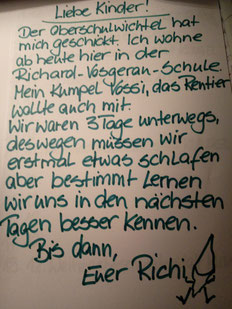 Liebe Kinder!
Der Oberschulwichtel hat
mich geschickt. Ich wohne
ab heute hier in der
Richard-Vosgerau-Schule.
Mein Kumpel Vossi, das Rentier
wollte auch mit.
Wir waren 3 Tage unterwegs,
deswegen müssen wir
erstmal etwas schlafen
aber bestimmt lernen
wir uns in den nächsten
Tagen besser kennen.
Bis dann,
Euer Richi